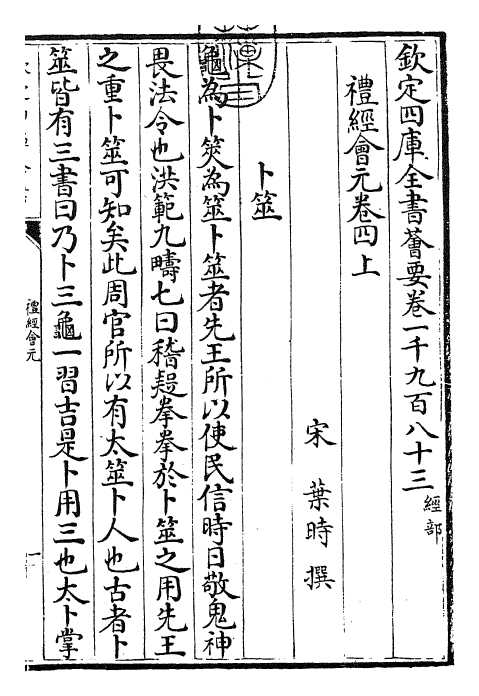 欽定四庫全書薈要卷一千九百八十三 經部
禮經會元卷四上
宋 葉時 撰
卜筮
龜為卜筴為筮卜筮者先王所以使民信時日敬鬼神
畏法令也洪範九疇七曰稽疑拳拳於卜筮之用先王
之重卜筮可知矣此周官所以有太筮卜人也古者卜
筮皆有三書曰乃卜三龜一習吉是卜用三也太卜掌
禮經會元
一